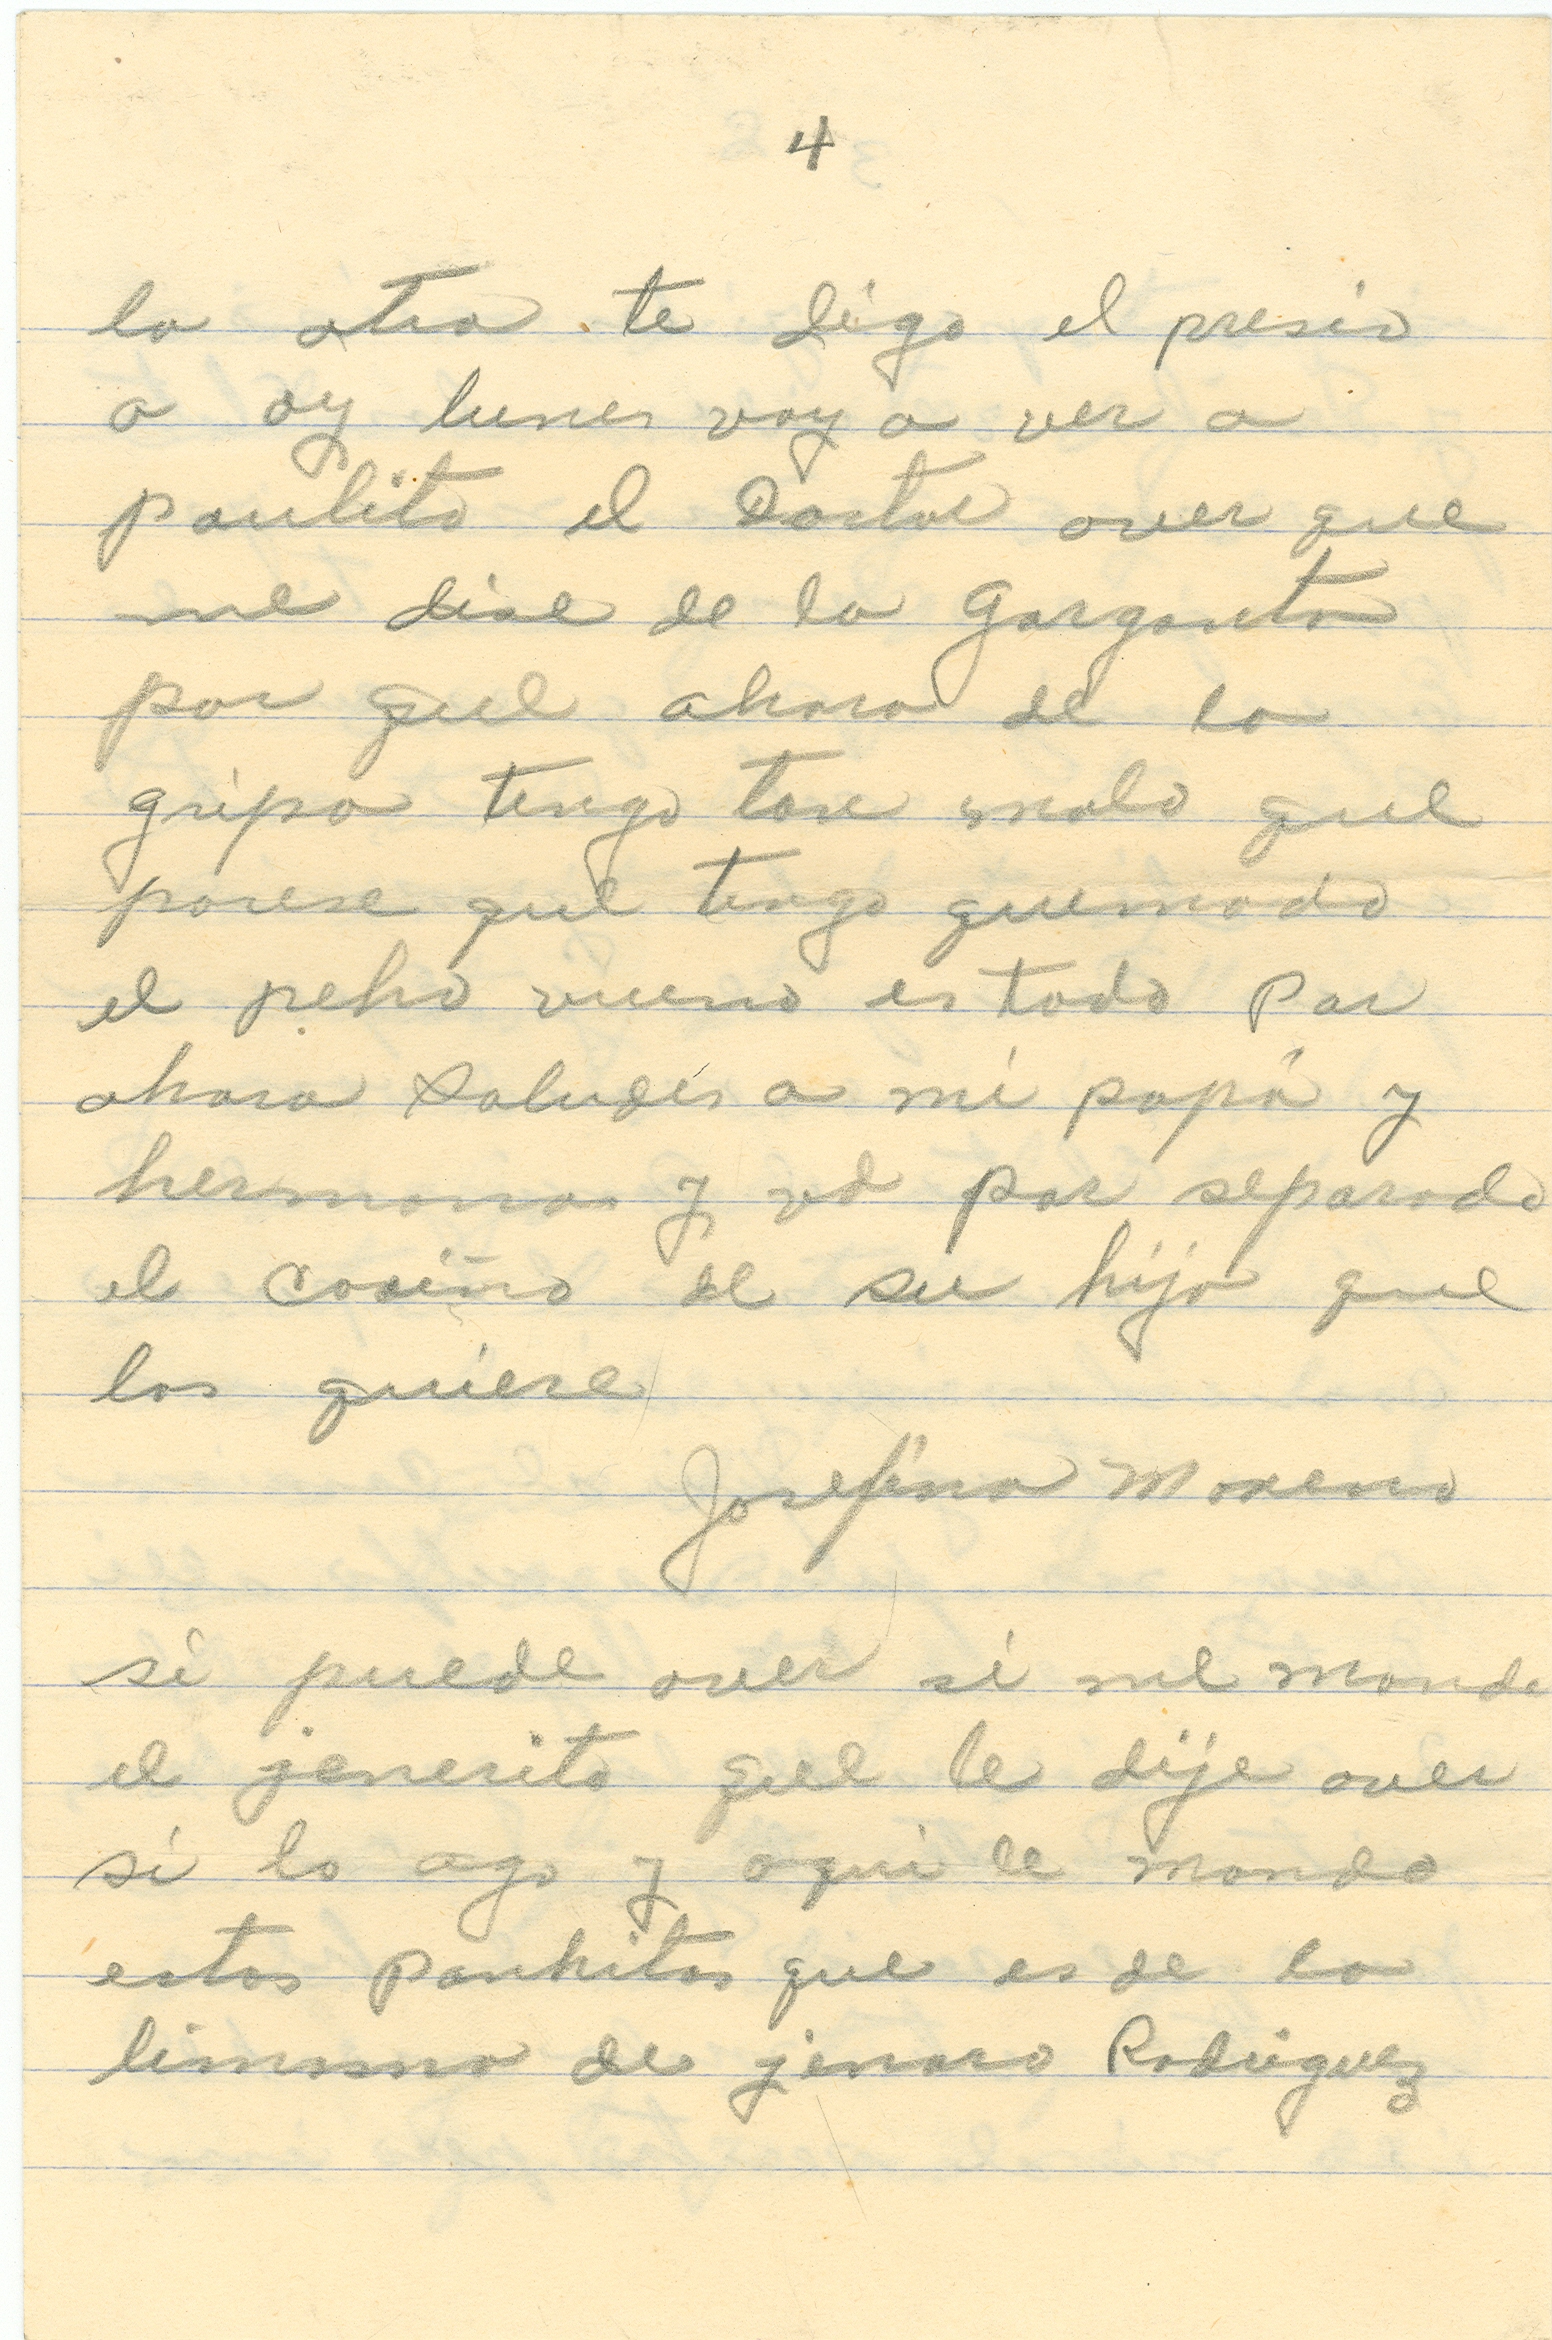 4
la otra te digo el presio
a oy lunes voy a ver a
paulito el Doctor aver que
me dise de la Garganta
por que ahora de la
gripa tengo tose malo que
parese que tengo quemado
el peho vueno es todo por
ahora Saludes a mi papá y
hermanos y vd por separado
el cariño de su hija que
los quiere
Josefina Moreno
si puede aver si me mande
el jenerito que le dije aver
si lo ago y aqui le mando
estos panhitos que es de la
limosna de jenaro Rodriguez